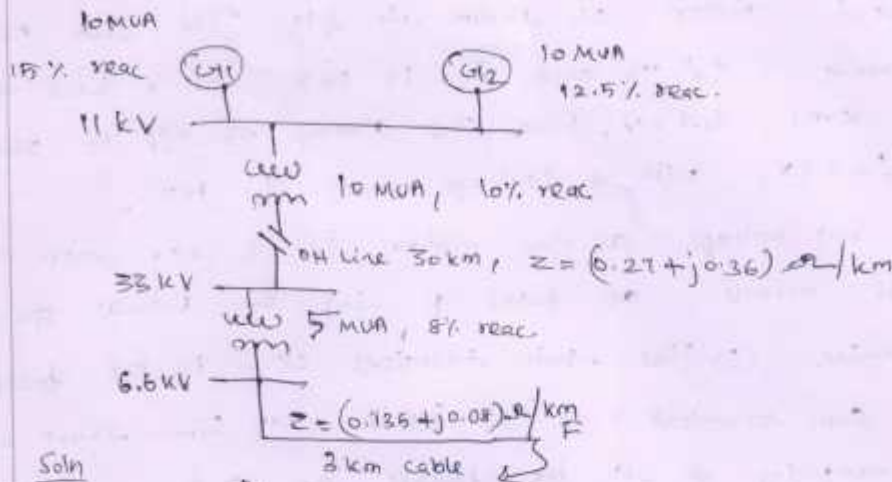 10 MVA
15 % reac G1 G2 10 MVA
12.5 % reac.
11 kV
10 MVA, 10% reac
OH Line 30km, Z = (0.27+j0.36) Ω/km
33 kV
5 MVA, 8% reac.
6.6 kV
Z = (0.135+j0.08) Ω/km
F
3 km cable
Soln